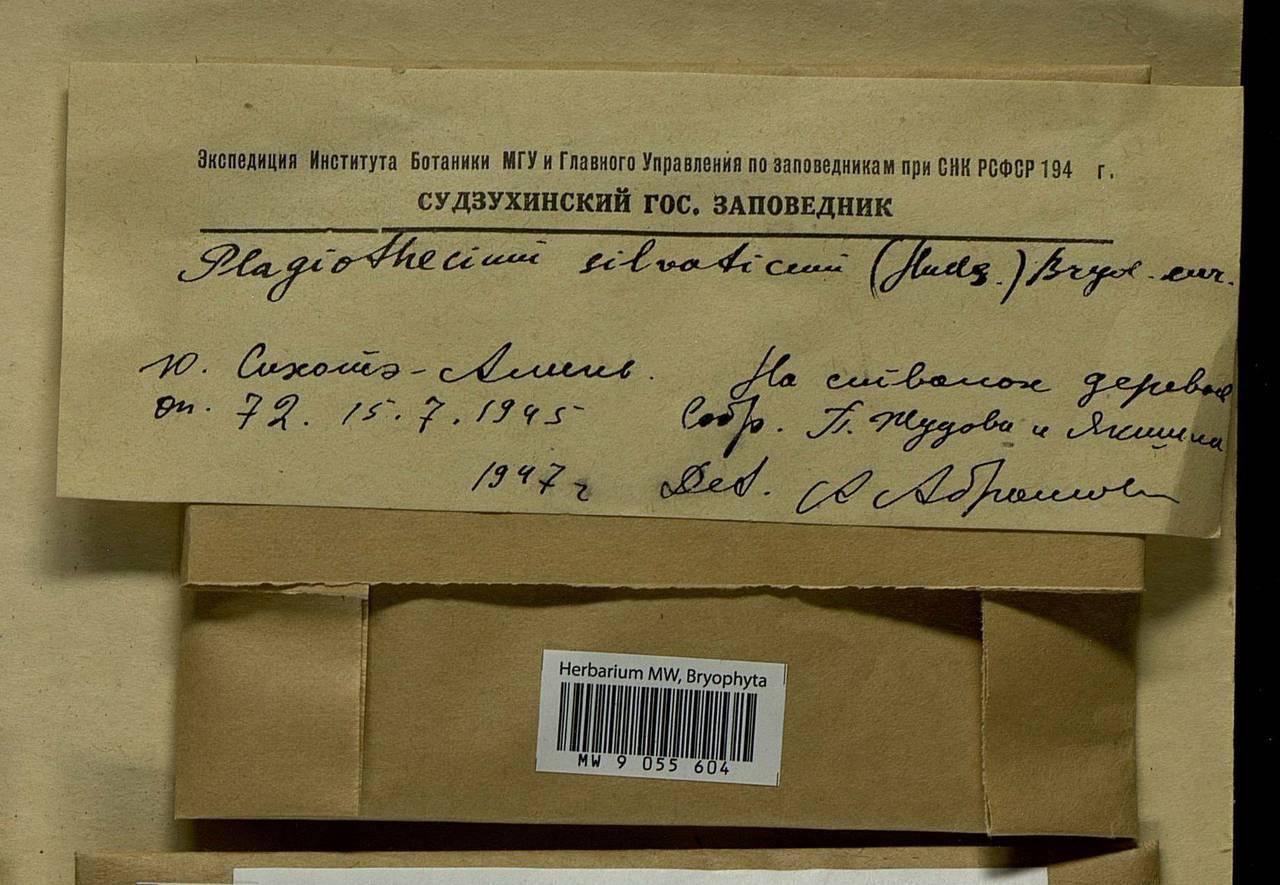 Экспедиция Института Ботаники МГУ и Главного Управления по заповедникам при СНК РСФСР 194 г.
СУДЗУХИНСКИЙ ГОС. ЗАПОВЕДНИК
Plagiothecium silvaticum (Huds.) Bryol. eur.
Ю. Сихотэ-Алинь. На стволах деревьев
оп. 72. 15.7.1945 Собр. П. Жудова и
1947 г Det. А Абрамова
Herbarium MW, Bryophyta
MW 9 055 604